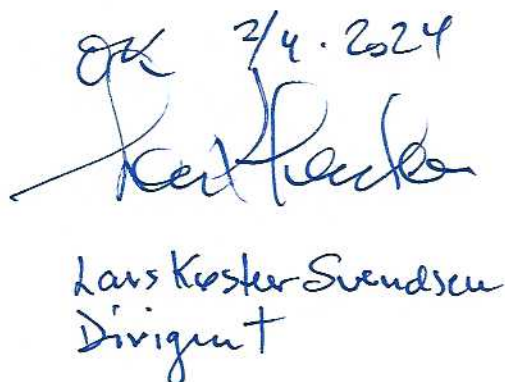 OK 2/4.2024
Lars Køster Svendsen
Dirigent